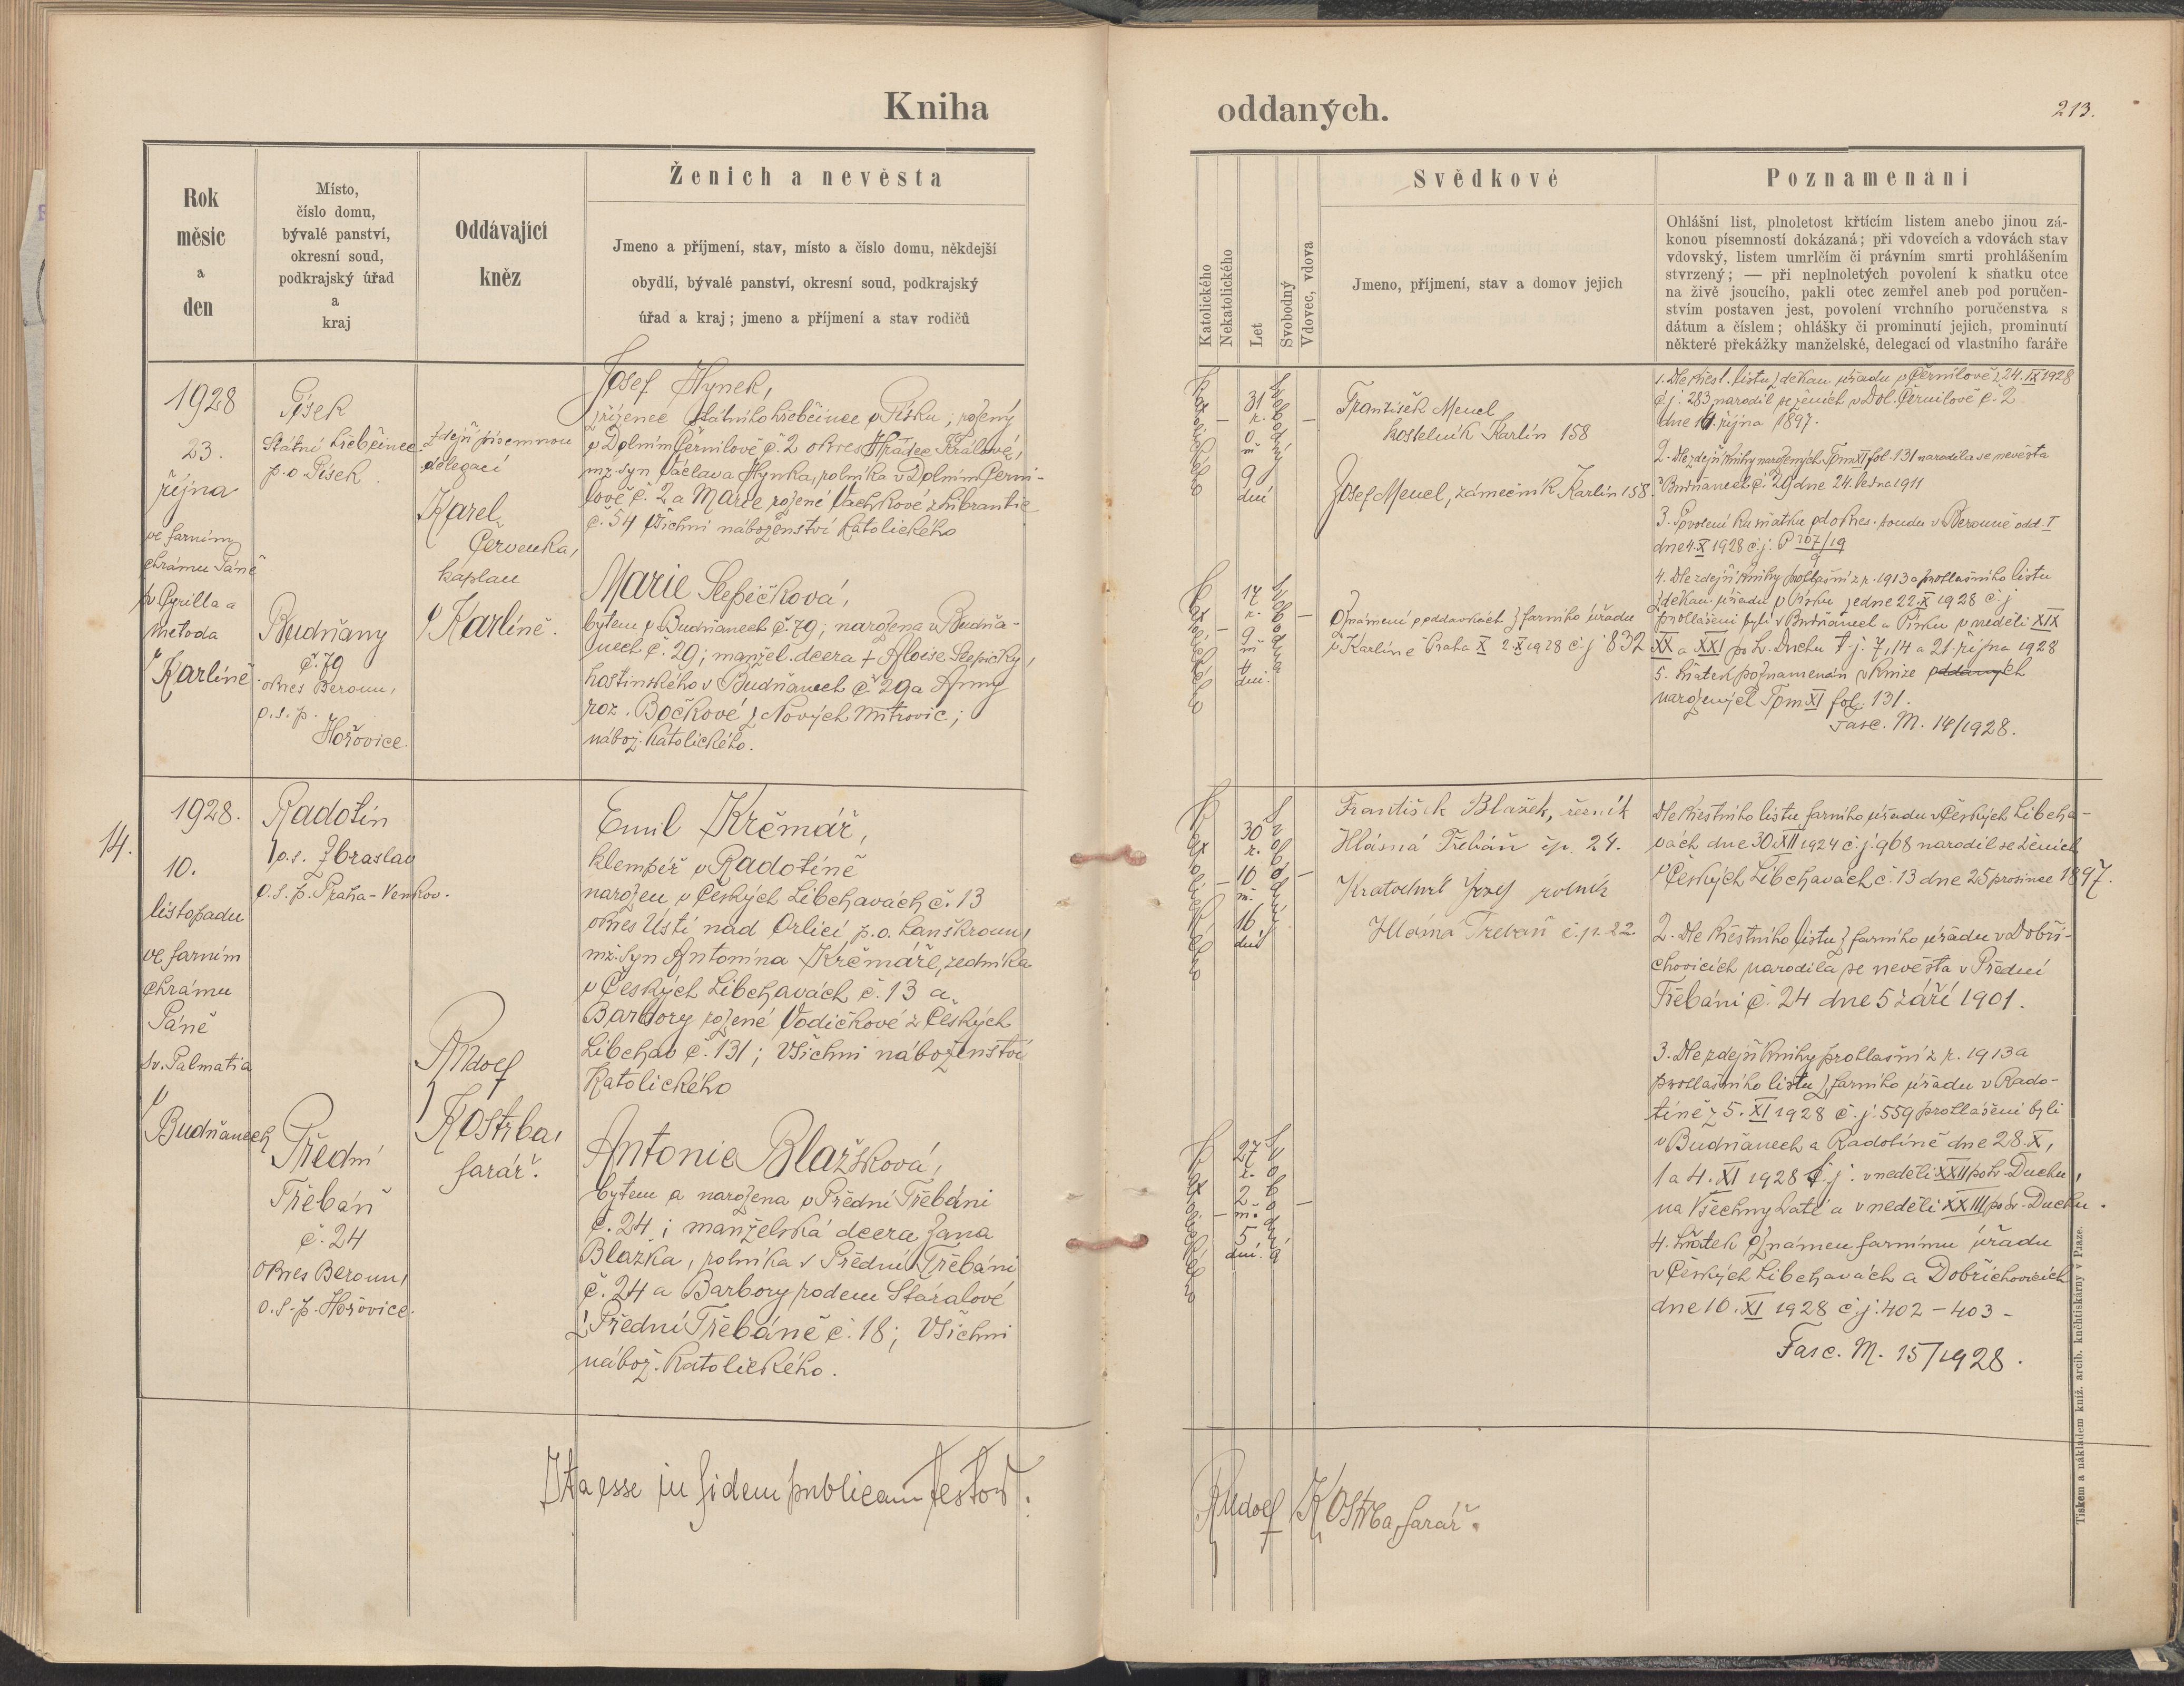 Kniha oddaných.
213.
Rok měsíc a den
Místo, číslo domu, bývalé panství, okresní soud, podkrajský úřad a kraj
Oddávající kněz
Ženich a nevěsta
Jmeno a příjmení, stav, místo a číslo domu, někdejší
obydlí, bývalé panství, okresní soud, podkrajský
úřad a kraj; jmeno a příjmení a stav rodičů
Katolického
Nekatolického
Let
Svobodný
Vdovec, vdova
Svědkové
Jmeno, příjmení, stav a domov jejich
Poznamenání
Ohlášní list, plnoletost křtícím listem anebo jinou zá-
konou písemností dokázaná; při vdovcích a vdovách stav
vdovský, listem umrlčím či právním smrti prohlášením
stvrzený; — při neplnoletých povolení k sňatku otce
na živě jsoucího, pakli otec zemřel aneb pod poručen-
stvím postaven jest, povolení vrchního poručenstva s
dátum a číslem; ohlášky či prominutí jejich, prominutí
některé překážky manželské, delegací od vlastního faráře
1928
23.
října
ve farním
chrámu Páně
sv Cyrilla a
Metoda
v Karlíně
Písek
Státní hřebčinec
p.o. Písek
Budňany
č. 79
okres Beroun,
o.s.p.
Hořovice.
Zdejší písemnou
delegací
Karel
Červenka,
kaplan
v Karlíně.
Josef Hynek,
zřízenec státního hřebčince v Písku; rožený
v Dolním Černilově č. 2 okres Hradec Králové,
mž. syn Václava Hynka, rolníka v Dolním Černi-
lově č. 2 a Marie rožené Vachkové z Librantic
č. 54 Všichni náboženství katolického
Marie Slepičková,
bytem v Budňanech č. 79; narožena v Budňa-
nech č. 29; manžel. dcera + Aloise Slepičky,
hostinského v Budňanech č 29 a Anny
roz. Bočkové z Nových Mitrovic;
nábož. katolického.
Katolického
31 r. 0 m 9 dní
Svobodný
Katolického
17 r. 9 m 4 dní.
Svobodná
František Mencl
kostelník Karlín 158
Josef Mencl, zámečník Karlín 158.
Oznámení o oddavkách z farního úřadu
v Karlíně Praha X 2.X 1928 č.j 832
1. Dle křest. listu z děkan. úřadu v Černilově z 24.IX 1928
č.j. 283 narodil se ženich v Dol. Černilově č. 2
dne 14. října 1897.
2. Dle zdejší knihy narozených Tom XI fol. 131 narodila se nevěsta
v Budňanech č. 29 dne 24. ledna 1911
3. Svolení ku sňatku od okres. soudu v Berouně odd. I
dne 4.X 1928 č.j. P 207/19
4. Dle zdejší knihy prohlašní z r. 1913 a prohlašního listu
z děkan. úřadu v Písku ze dne 22.X 1928 č.j
prohlášeni byli v Budňanech a Písku v neděli XIX
XX a XXI po Sv. Duchu t.j. 7, 14 a 21. října 1928
5. Sňatek poznamenán v knize oddaných
narozených Tom XI fol. 131.
Fasc. M. 14/1928.
14.
1928.
10.
listopadu
ve farním
chrámu
Páně
sv. Palmatia
v Budňanech
Radotín
o.s. Zbraslav
o.s.p. Praha-Venkov.
Přední
Třebáň
č. 24
okres Beroun,
o.s.p. Hořovice.
Rudolf
Kostrba,
farář.
Emil Krčmář,
klempíř v Radotíně
narožen v Českých Libchavách č. 13
okres Ústí nad Orlicí p.o. Lanškroun,
mž. syn Antonína Krčmáře, zedníka
v Českých Libchavách č. 13 a
Barbory rožené Vodičkové z Českých
Libchav č. 131; Všichni náboženství
katolického
Antonie Blažková,
bytem a narožena v Přední Třebáni
č. 24; manželská dcera Jana
Blažka, rolníka v Přední Třebáni
č. 24 a Barbory rodem Stáralové
z Přední Třebáně č. 18; Všichni
nábož. katolického.
Katolického
30 r. 10 m. 16 dní
Svobodný
Katolického
27 r. 2 m. 5 dní.
Svobodná
František Blažek, řezník
Hlásná Třebáň čp. 24.
Kratochvíl Josef rolník
Hlásná Třebáň č.p. 22.
Dle křestního listu farního úřadu v Českých Libcha-
vách dne 30.XII 1924 č.j. 968 narodil se ženich
v Českých Libchavách č. 13 dne 25 prosince 1897.
2. Dle křestního listu z farního úřadu v Dobři-
chovicích narodila se nevěsta v Přední
Třebáni č. 24 dne 5 září 1901.
3. Dle zdejší knihy prohlašní z r. 1913 a
prohlašního listu z farního úřadu v Rado-
tíně z 5.XI 1928 č.j. 559 prohlášeni byli
v Budňanech a Radotíně dne 28.X,
1 a 4.XI 1928 t.j. v neděli XXII po Sv. Duchu,
na Všechny Svaté a v neděli XXIII po Sv. Duchu.
4. Sňatek oznámen farnímu úřadu
v Českých Libchavách a Dobřichovicích
dne 10.XI 1928 č.j. 402-403-
Fasc. M. 15/1928.
Ita esse in fidem publicam testor.
Rudolf Kostrba, farář.
Tiskem a nákladem kníž. arcib. knihtiskárny v Praze.